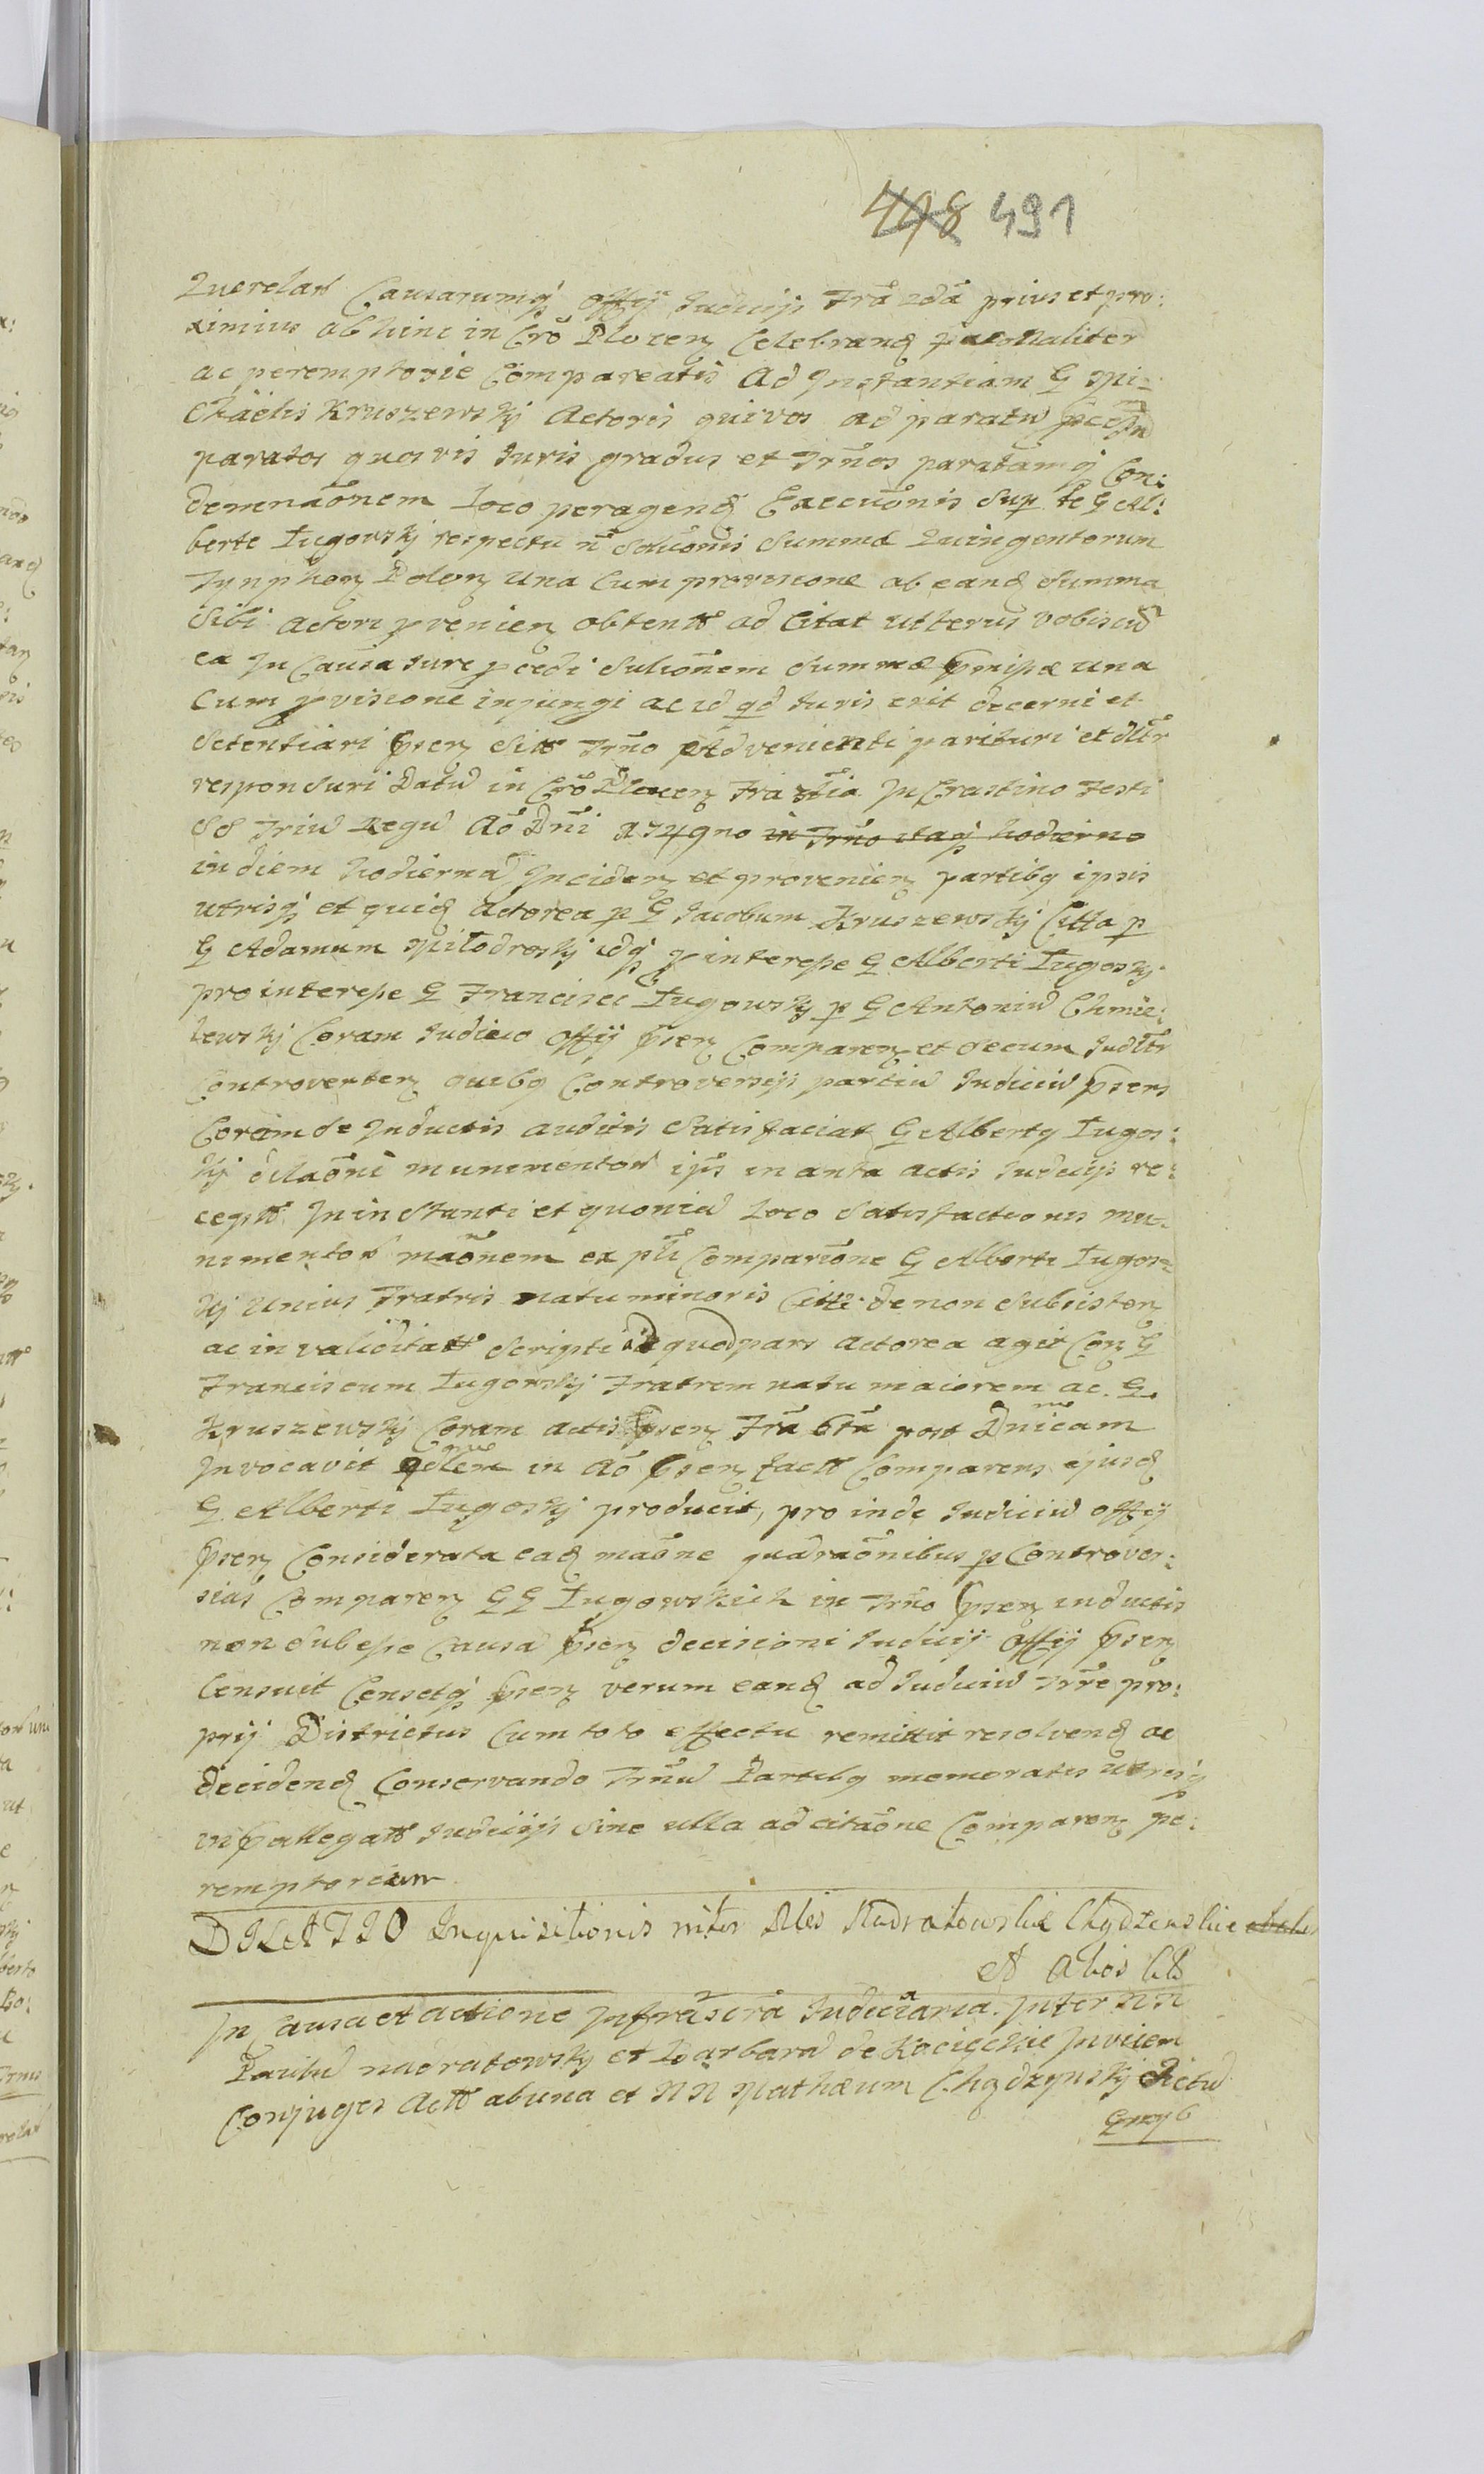 448 491
Querelar Causarumq̃ Offij Judicijs Fra 2da prius et pro:
ximius abhinc in Cro Plocen Celebrand
ac peremptorie Compareatis Ad Instantiam G Mi:
chaelis Kruszewskj Actoris qui vos ad paratu
paratos quos vis Juris gradus et Trnos paratamq̃ Con:
demnaonem loco peragend Execuonis Sup te G Al:
berte Lugowskj respectu n Soluonis Summæ Quingentorum
Tynphon Polon una Cum provisione ab eand Summa
Sibi Actori pvenien obten ad Citat ulterus vobiscu
ea In Causa Jure pcedi Suluonem Summæ pnipæ una
Cum pvisione injungi ac id qd Juris erit decerni et
Setentiari psen Sitt Trno Advenienti parituri et dltr
responsuri Datu in Cro Plocen Fra 3tia In Crastino Festi
SS Triu Regu Ao Dni 1749no in Trno itaq̃ hodierno
in diem hodierna Inciden et provenien partibq ipsis
utrisq̃ et quid Actorea p G Jacobum Kruszewskj Citta p
G Adamum Milodroskj idq̃ p interesse G Alberti Lugoskj
pro interesse G Francisci Lugowskj p G Antoniu Chmie:
lewskj Coram Judicio Offij psen Comparen et secum Judltr
Controverten quibq Controversijs partiu Judiciu psens
Coram se Inductis auditis Satisfaciat G Albertq Lugos:
kj dilaoni munimentor ips in anta actis Judicijs re:
cept In instanti et quoniu Loco Satisfactionis mu:
nimentor maonem ex pti Compariõne G Alberti Lugos:
kj Unius Fratris natu minoris Citti de non Subsisten
ac in validitatt Scripti id quod pars Actorea agit Con G
Franciscum Lugowskj Fratrem natu maiorem ac G
Kruszewskj Coram actis psen Fra 6ta post Dnicam
Invocavit in Ao psen fact Comparens ejusd
G Alberti Lugoskj producit, pro inde Judiciu Offij
psen Considerata ead maone quadraonibus p Controver:
sias Comparen GG Lugowskich in Trno psen inductis
non Subesse Causa psen decisioni Judicij Offij psen
Censuit Censetq̃ psen verum eand ad Judiciu Trre pro:
prij Districtus Cum toto effectu remittit resolvend ac
decidend Conservando Trnu Partibq memoratis utrisq
in pallegatt Judicijs Sine ulla ad citaone Comparen pe:
remptorium
DILATIO Inquisitionis niter Nles Nadratowskie Chądzenskie
et Alios
In Causa et Actione Infrascra Judiciaria Inter NN
Paulu nadratowskj et Barbara de Kocięckie Inviem
Conjuges Actt ab una et NN Mathæum Chądzynskj dictu
Grzyb